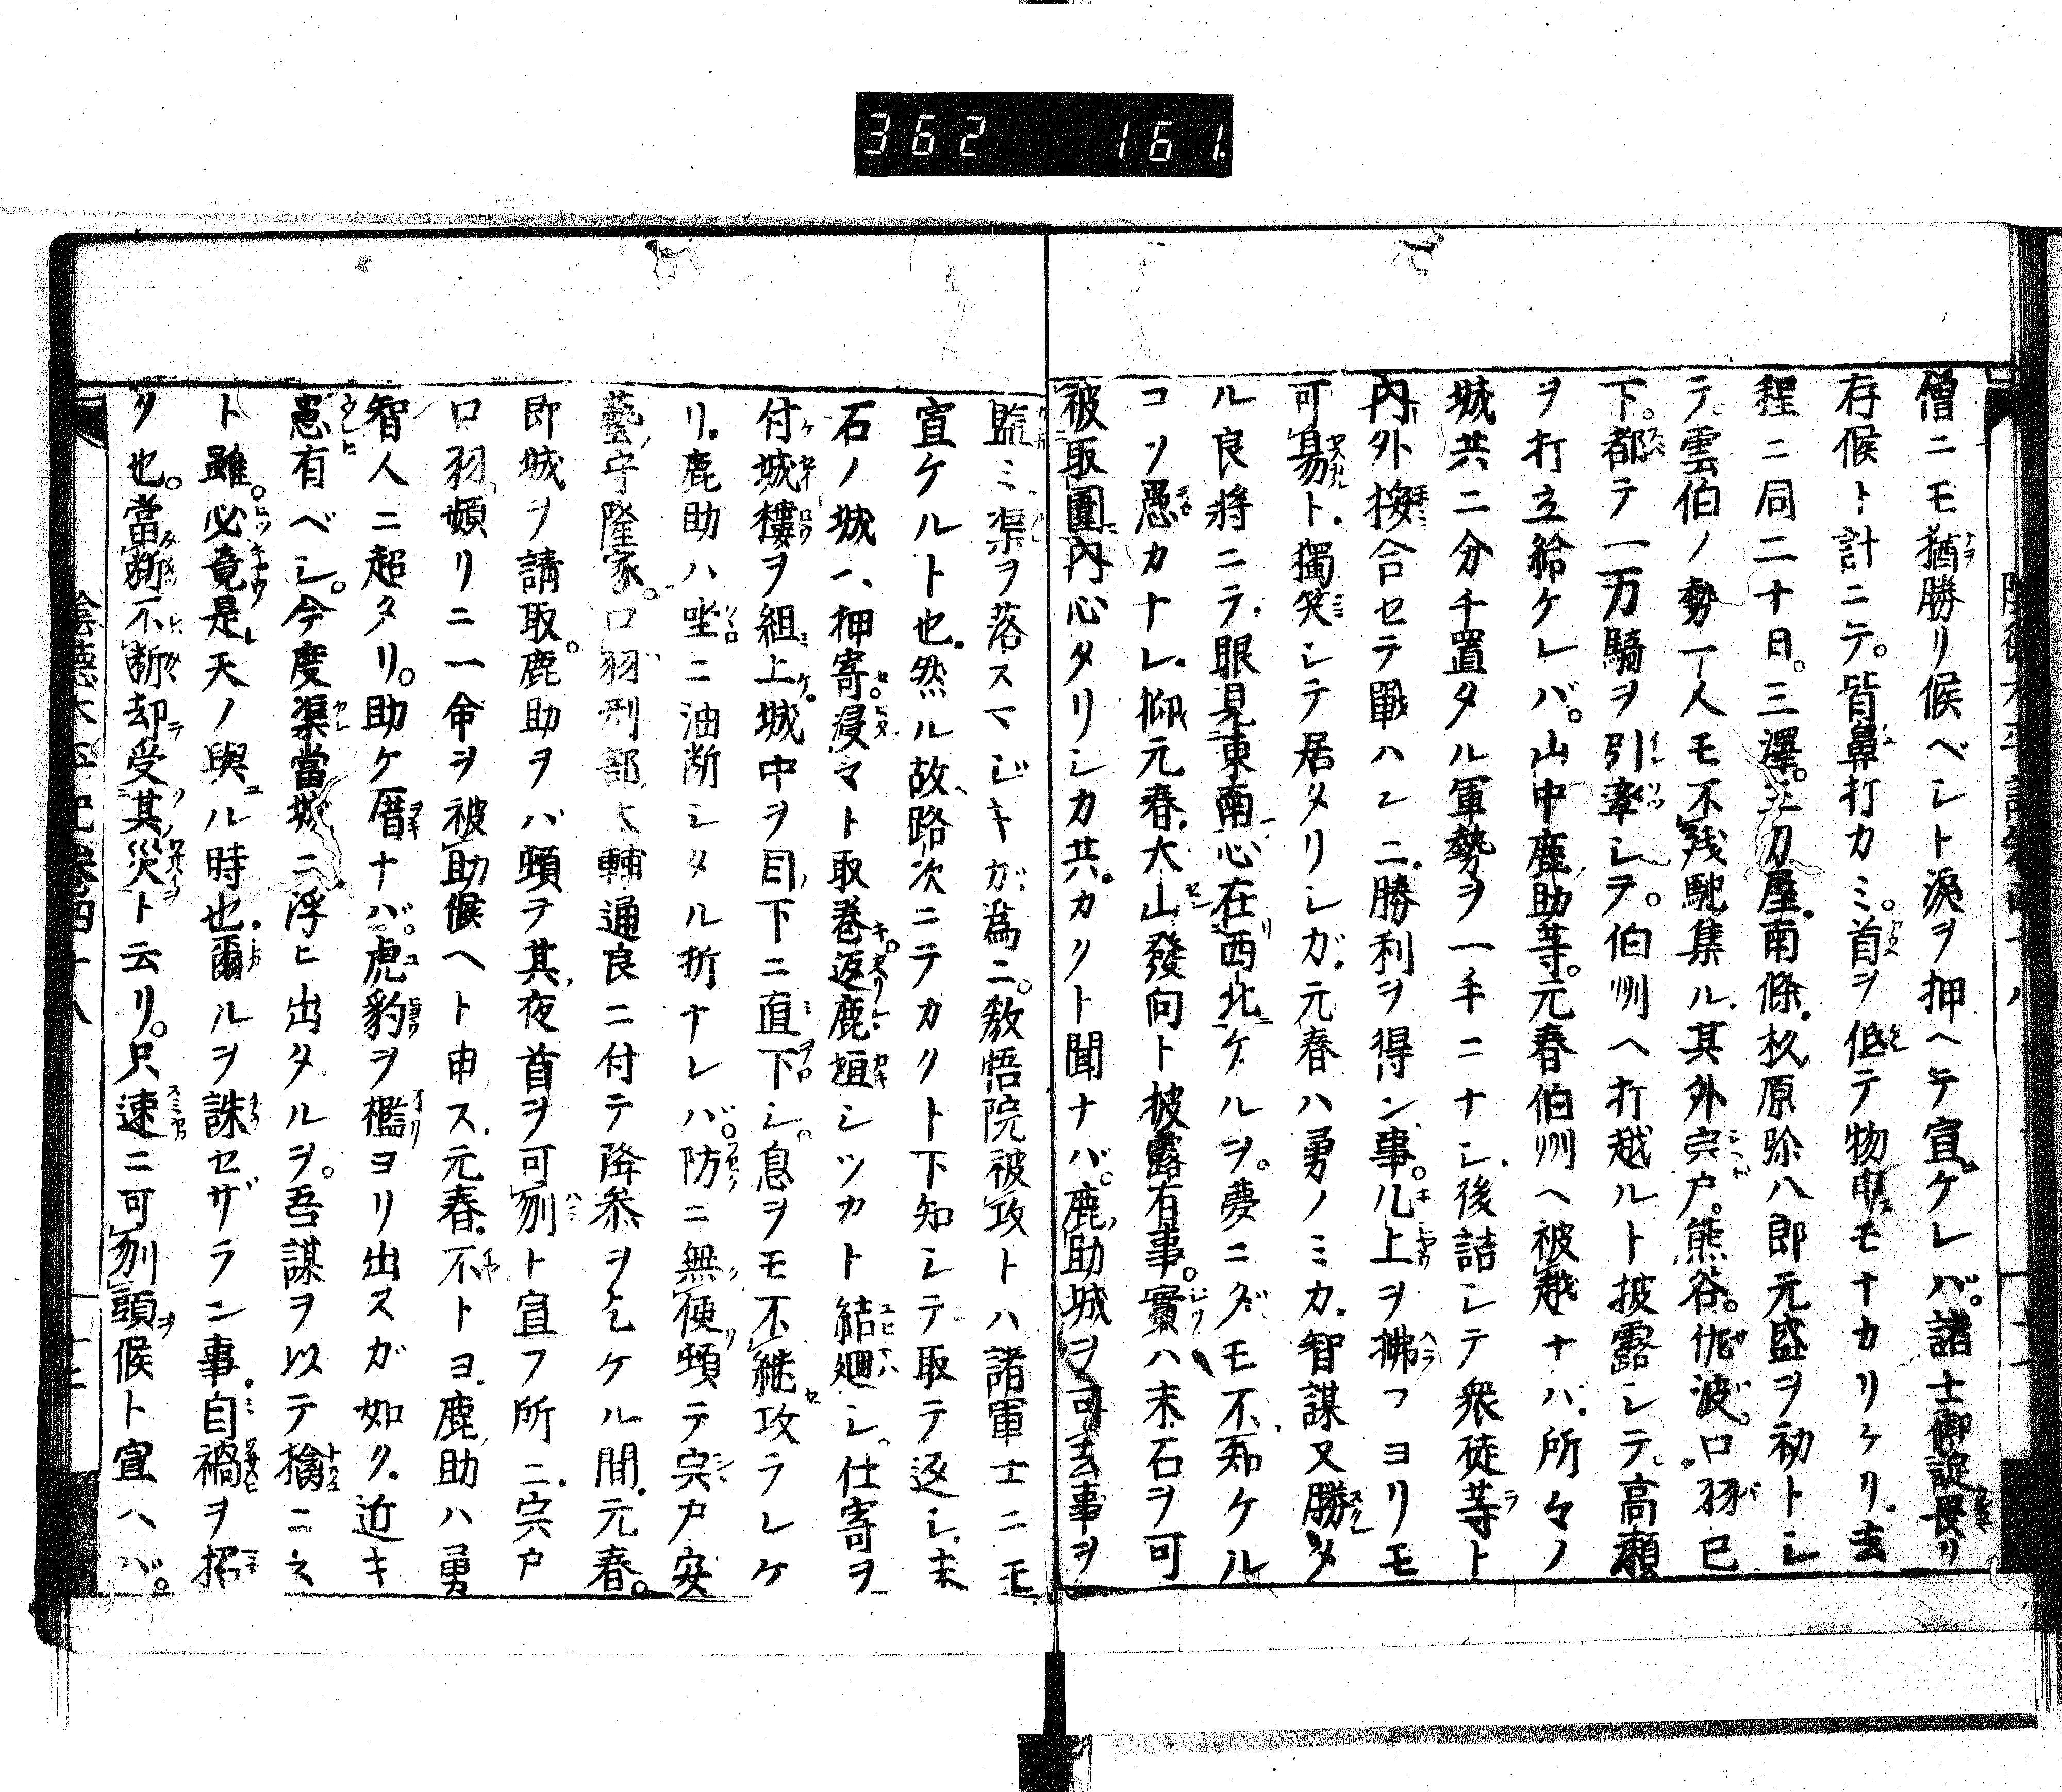 362 161.
僧ニモ猶勝リ候ベシト涙ヲ押ヘテ宣ケレバ。諸士御諚畏リ
存候ト計ニテ。皆鼻打カミ。首ヲ低テ物申モナカリケリ。去
程ニ同二十日。三澤。三刀屋。南條。杦原弥八郎元盛ヲ初トシ
テ雲伯ノ勢一人モ不残馳集ル。其外宍戸。熊谷。佐波。口羽已
下。都テ一万騎ヲ引率シテ。伯州ヘ打越ルト披露シテ。高瀬
ヲ打立給ケレバ。山中鹿助等。元春伯州ヘ被越ナバ。所々ノ
城共ニ分千置タル軍勢ヲ一手ニナシ。後詰シテ衆徒等ト
内外按合セテ戰ハンニ。勝利ヲ得ン事。几上ヲ拂フヨリモ
可易ト。獨笑シテ居タリシガ。元春ハ勇ノミカ。智謀又勝タ
ル良將ニテ。眼見東南心在西北ケルヲ。夢ニダモ不知ケル
コソ愚カナレ。抑元春。大山發向ト披露有事。實ハ末石ヲ可
被取圍内心タリシカ共。カクト聞ナバ。鹿助城ヲ可去事ヲ
監ミ渠ヲ落スマジキガ為ニ。教悟院被攻トハ諸軍士ニモ
宣ケルト也。然ル故路次ニテカクト下知シテ取テ返シ。末
石ノ城ヘ押寄。浸マト取巻。返鹿垣シツカト結廻シ。仕寄ヲ
付城樓ヲ組上。城中ヲ目下ニ直下シ。息ヲモ不継攻ラレケ
リ。鹿助ハ坐ニ油断シタル折ナレバ。防ニ無便頓テ宍戸安
藝守隆家。口羽刑部太輔通良ニ付テ降参ヲ乞ケル間。元春。
即城ヲ請取。鹿助ヲバ頓ヲ其夜首ヲ可刎ト宣フ所ニ。宍戸
口羽頻リニ一命ヲ被助候ヘト申ス。元春。不トヨ。鹿助ハ勇
智人ニ超タリ。助ケ厝ナバ。虎豹ヲ檻ヨリ出スガ如ク。近キ
患有ベシ。今度渠當城ニ浮ヒ出タルヲ。吾謀ヲ以テ擒ニス
ト雖。必竟是天ノ與ル時也。爾ルヲ誅セザラン事。自禍ヲ招
リ也。當斷不断却受其災ト云リ。只速ニ可刎頭候ト宣ヘバ。